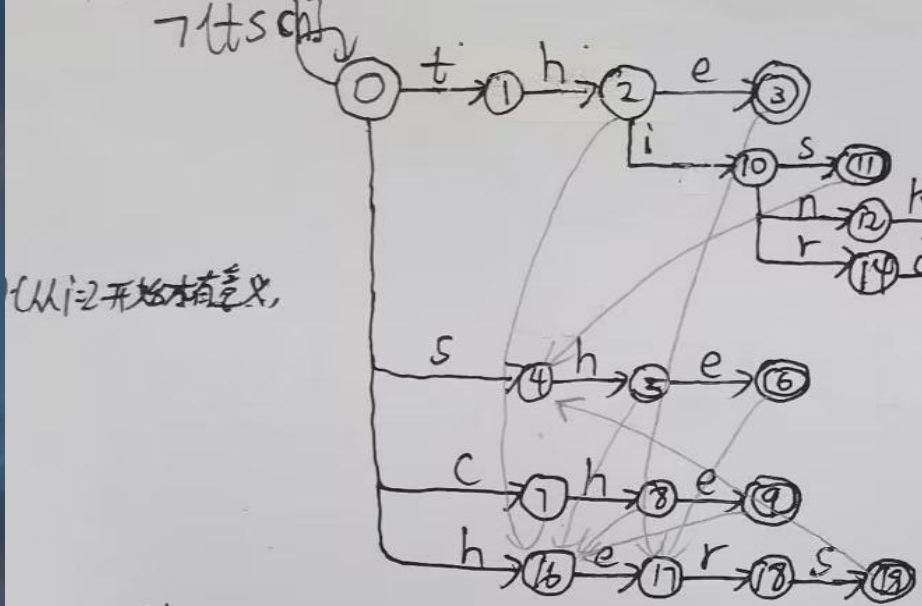 ¬{t s c h}
0 t 1 h 2 e 3
i 10 s 11
n 12 h
r 14
从i=2开始才有意义,
s 4 h 5 e 6
c 7 h 8 e 9
h 16 e 17 r 18 s 19